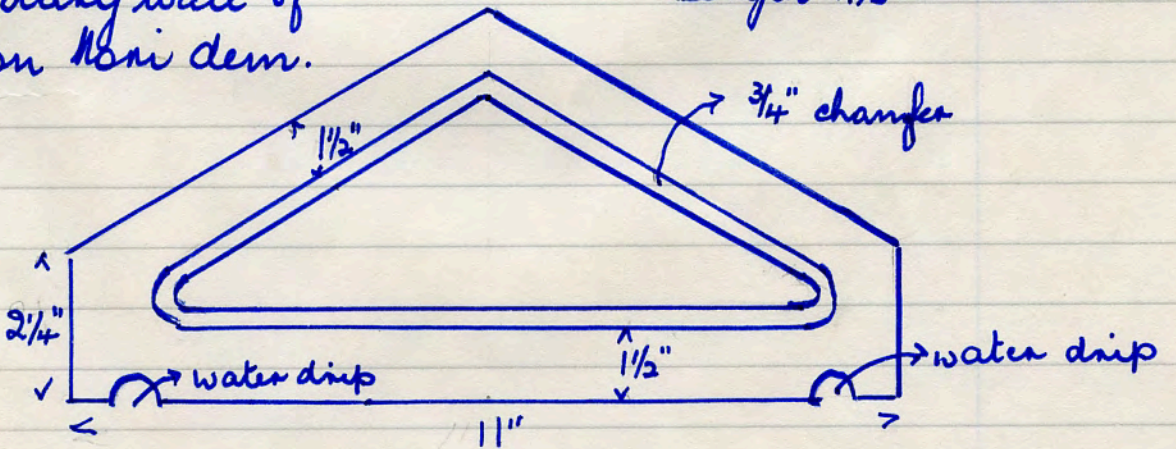 wall of
on Mori dem.
3/4" chamfer
1 1/2"
2 1/4"
1 1/2"
water drip
water drip
11"